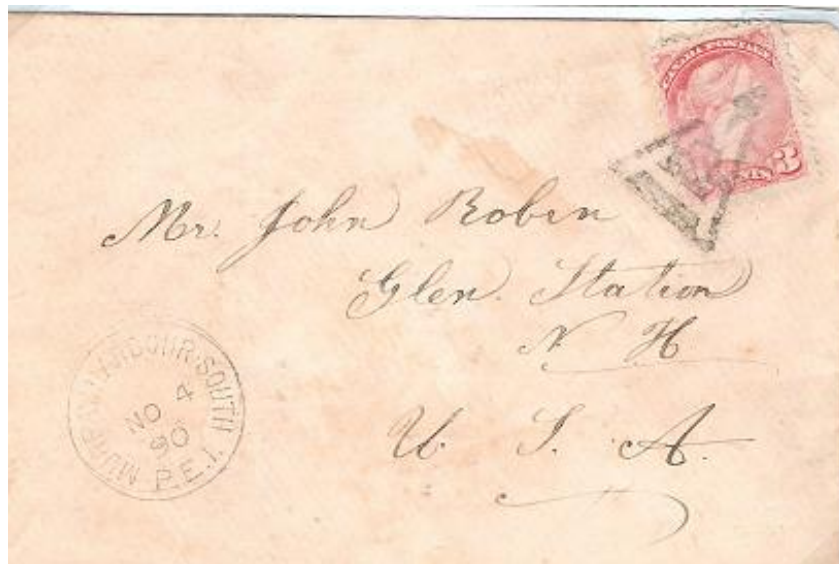 CANADA POSTAGE
3
CENTS
Mr. John Robin
Glen. Station
N H
U. S. A.
MURRAY HARBOUR SOUTH
NO 4
90
P.E.I.